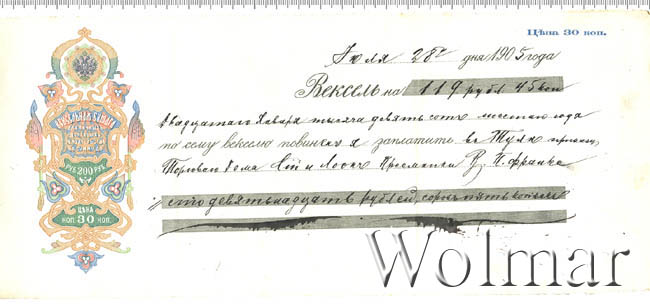 Цѣна 30 коп.
Июля 28го дня 1905 года
Вексель на 119 рубл 45 коп
Двадцатаго Января тысяча девятьсотъ шестаго года
по сему векселю повиненъ я заплатить въ Тулѣ
Торговаго Дома
сто девятнадцать рублей, сорокъ пять копѣекъ
РУБ 200 РУБ
ЦѢНА
КОП 30 КОП.
Wolmar